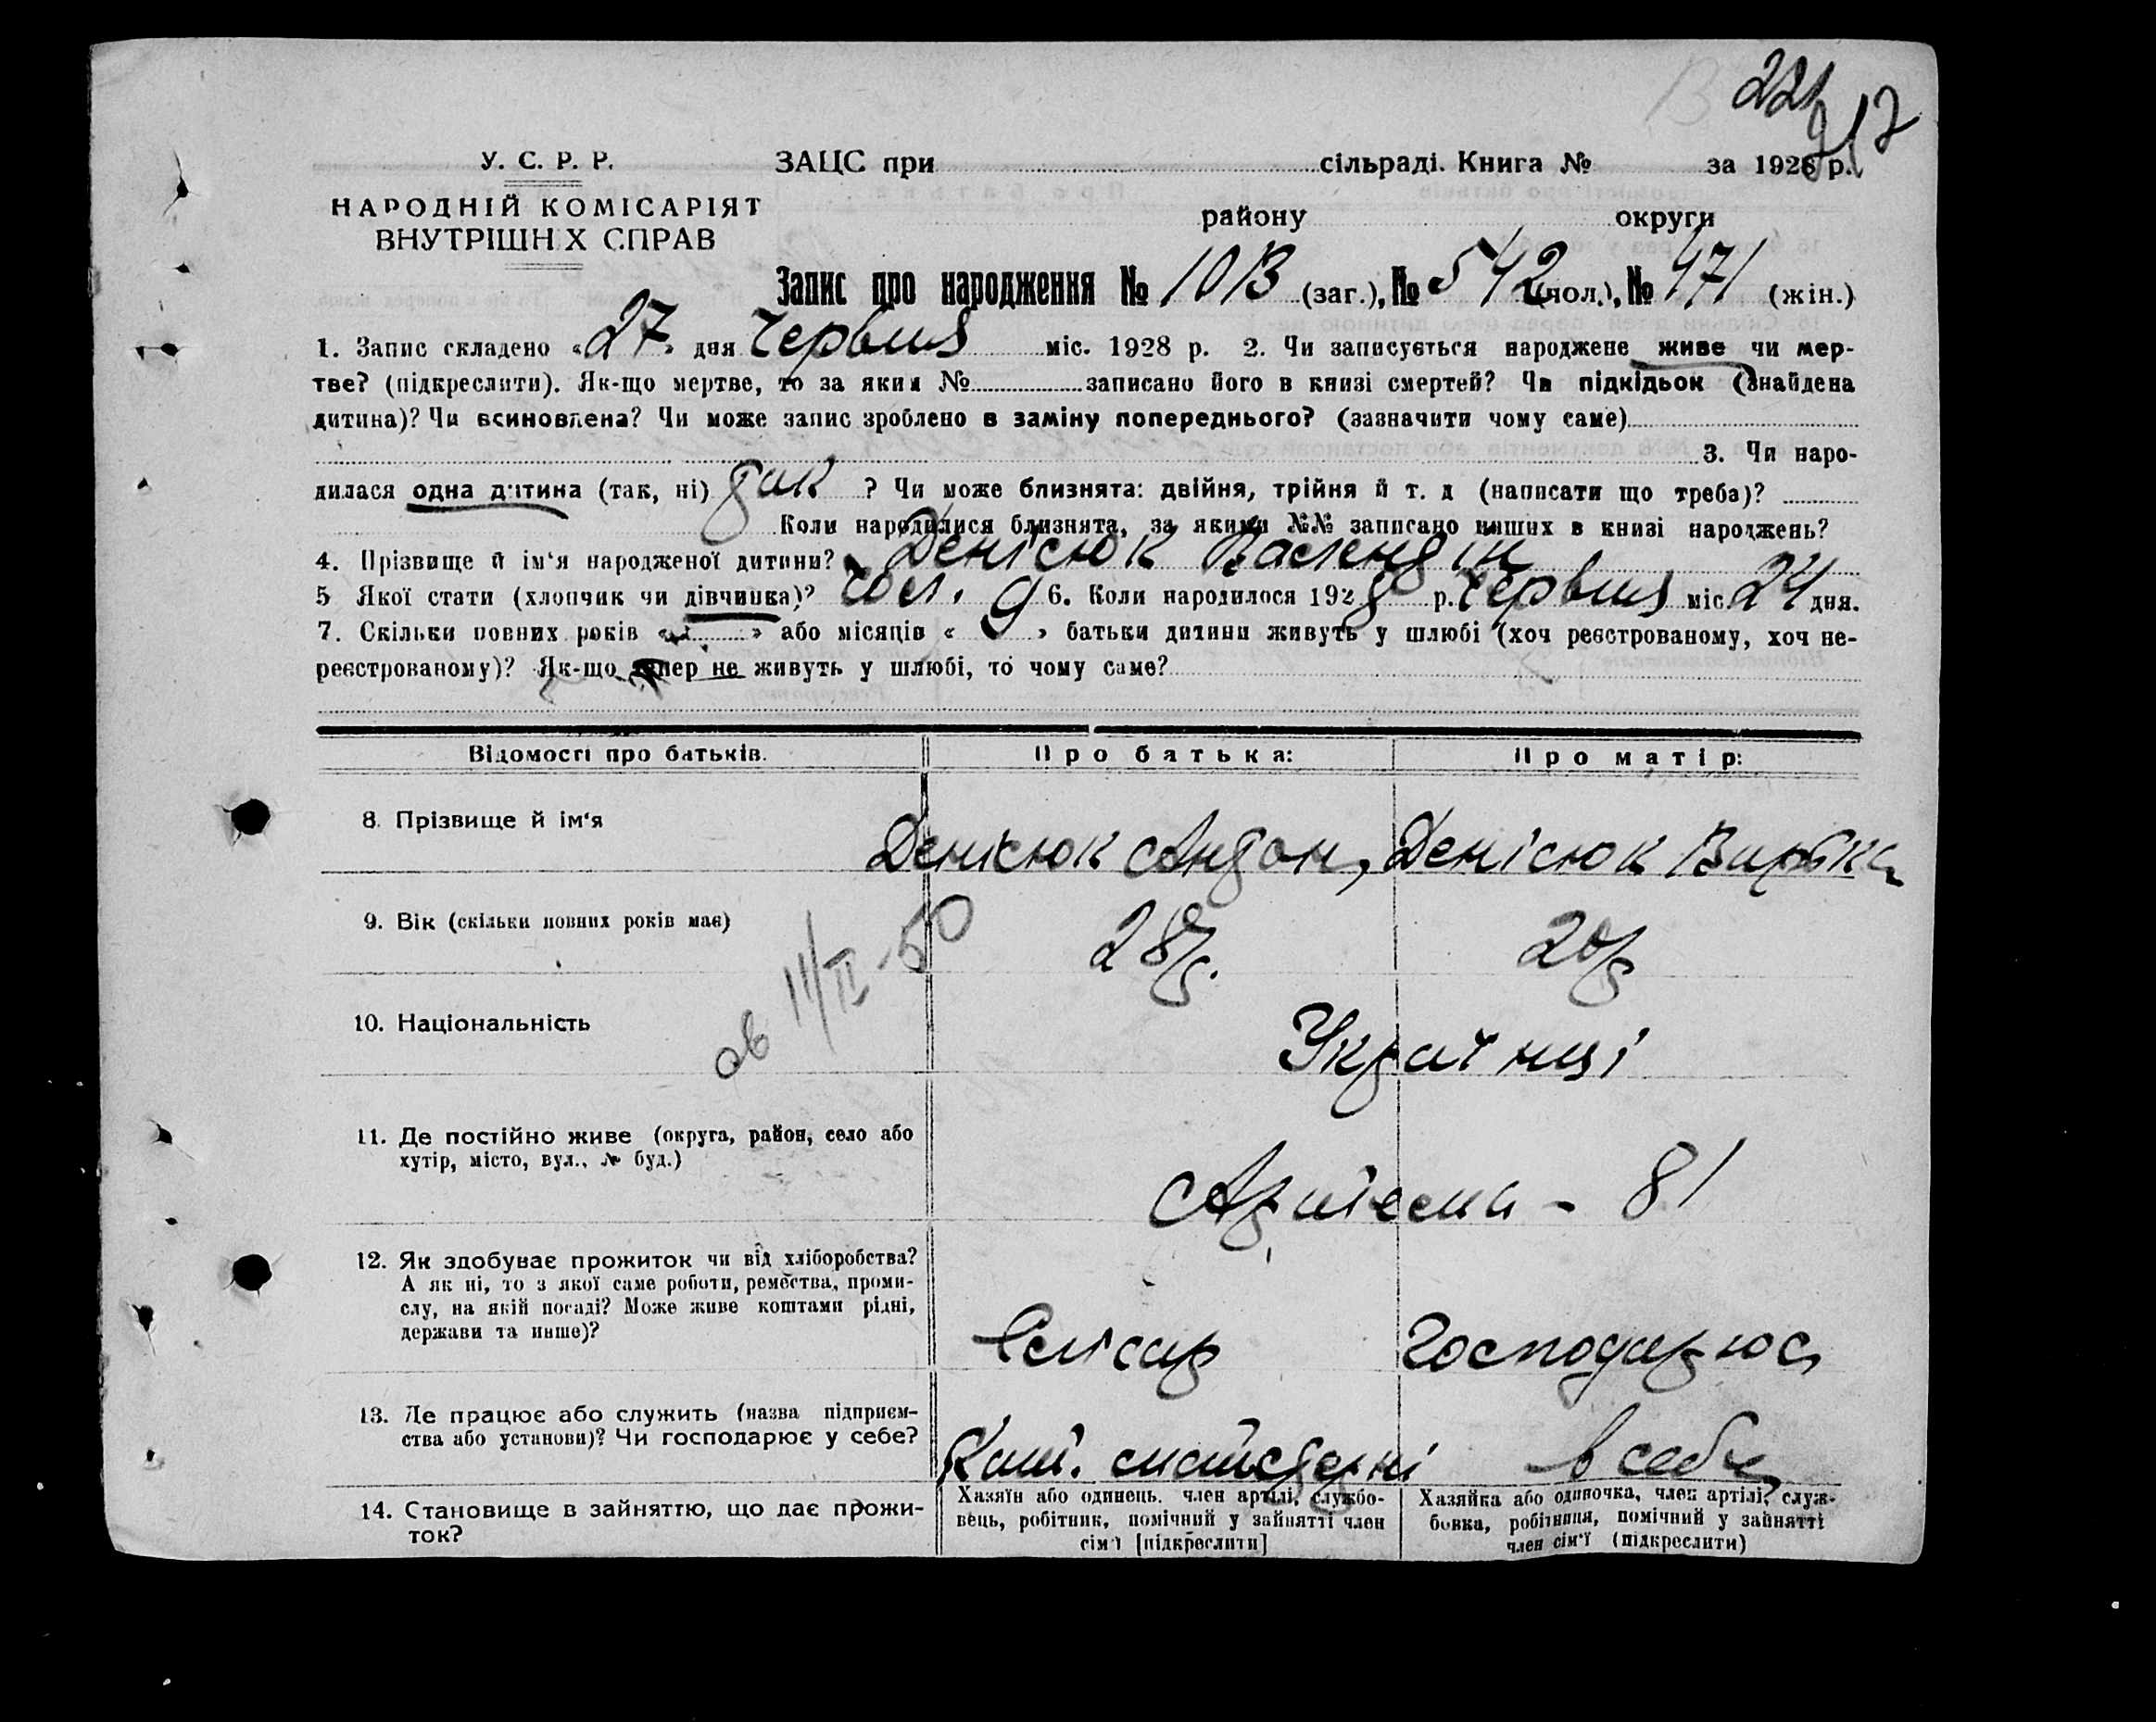 221
217
У. С. Р. Р.
ЗАЦС при сільраді. Книга № за 1928 р.
НАРОДНІЙ КОМІСАРІЯТ
ВНУТРІШНІХ СПРАВ
району округи
Запис про народження № 1013 (заг.), № 542 (чол.), № 471 (жін.)
1. Запис складено «27» дня Червня міс. 1928 р. 2. Чи записується народжене живе чи мер-
тве? (підкреслити). Як-що мертве, то за яким № записано його в книзі смертей? Чи підкідьок (знайдена
дитина)? Чи всиновлена? Чи може запис зроблено в заміну попереднього? (зазначити чому саме)
3. Чи наро-
дилася одна дитина (так, ні) так ? Чи може близнята: двійня, трійня й т. д (написати що треба)?
Коли народилися близнята, за якими №№ записано инших в книзі народжень?
4. Прізвище й ім'я народженої дитини? Денісюк Валентін
5 Якої стати (хлопчик чи дівчинка)? чол. 6. Коли народилося 1928 р. Червня міс 24 дня.
7. Скільки повних років « » або місяців « 9 » батьки дитини живуть у шлюбі (хоч реєстрованому, хоч не-
реєстрованому)? Як-що тепер не живуть у шлюбі, то чому саме?
Відомості про батьків. Про батька: Про матір:
8. Прізвище й ім'я Денісюк Антон, Денісюк
9. Вік (скільки повних років має) 28 р. 20 р
ов 11/II-50
10. Національність Українці
11. Де постійно живе (округа, район, село або
хутір, місто, вул., № буд.) - 81
12. Як здобуває прожиток чи від хліборобства?
А як ні, то з якої саме роботи, ремества, проми-
слу, на якій посаді? Може живе коштами рідні,
держави та инше)?
Слісар Господарює
13. Де працює або служить (назва підприєм-
ства або установи)? Чи господарює у себе?
майстерні в себе
14. Становище в зайняттю, що дає прожи-
ток?
Хазяїн або одинець. член артілі, службо-
вець, робітник, помічний у зайнятті член
сім'ї [підкреслити]
Хазяйка або одиночка, член артілі, служ-
бовка, робітниця, помічний у зайнятті
член сім'ї (підкреслити)